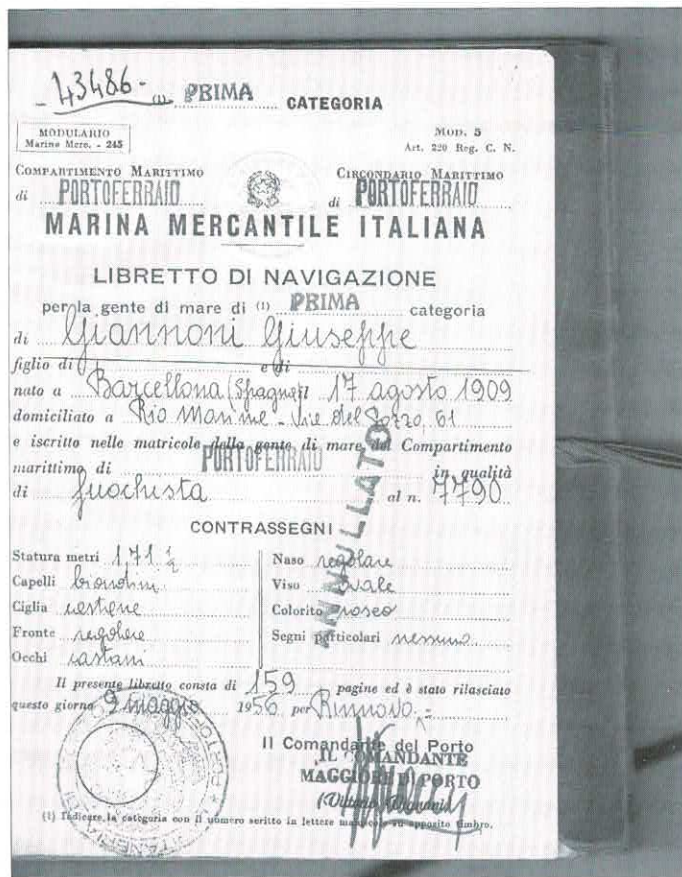 43486-
(1) PRIMA CATEGORIA
MODULARIO
Marina Merc. - 245
MOD. 5
Art. 220 Reg. C. N.
COMPARTIMENTO MARITTIMO
di PORTOFERRAIO
CIRCONDARIO MARITTIMO
di PORTOFERRAIO
MARINA MERCANTILE ITALIANA
LIBRETTO DI NAVIGAZIONE
per la gente di mare di (1) PRIMA categoria
di Giannoni Giuseppe
figlio di e di
nato a Barcellona (Spagna) il 17 agosto 1909
domiciliato a Rio Marina - Via del Pozzo, 61
e iscritto nelle matricole della gente di mare del Compartimento
marittimo di PORTOFERRAIO in qualità
di fuochista al n. 7790
ANNULLATO
CONTRASSEGNI
Statura metri 1,71 ½
Capelli biondini
Ciglia castane
Fronte regolare
Occhi castani
Naso regolare
Viso ovale
Colorito roseo
Segni particolari nessuno
Il presente libretto consta di 159 pagine ed è stato rilasciato
questo giorno 9 maggio 1956 per Rinnovo.-
Il Comandante del Porto
IL COMANDANTE
MAGGIORE DI PORTO
(1) Indicare la categoria con il numero scritto in lettere maiuscole su apposito timbro.